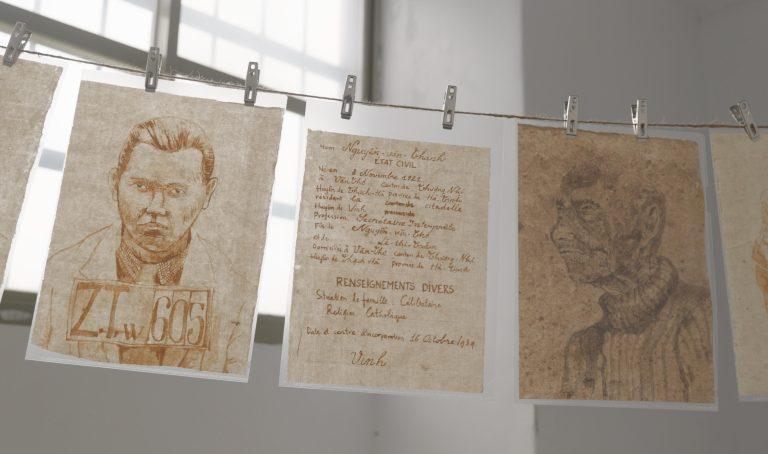 Z.I.w 605
Nom Nguyễn-văn-Thanh
ETAT CIVIL
Né en 3 Novembre 1921
à Văn-Thê canton de Thượng-Nhị
Huyện de Thạch-Hà province de Hà-Tĩnh
résidant la citadelle
Huyện de Vinh
Profession Secrétaire Interprète
Fils de Nguyễn-văn-Thê
et de
Domicilié à Văn-Thê canton de Thượng-Nhị
Huyện de Thạch-Hà province de Hà-Tĩnh
RENSEIGNEMENTS DIVERS
Situation de famille : Célibataire
Religion Catholique
Date d'entrée d'incorporation 16 Octobre 1939
Vinh